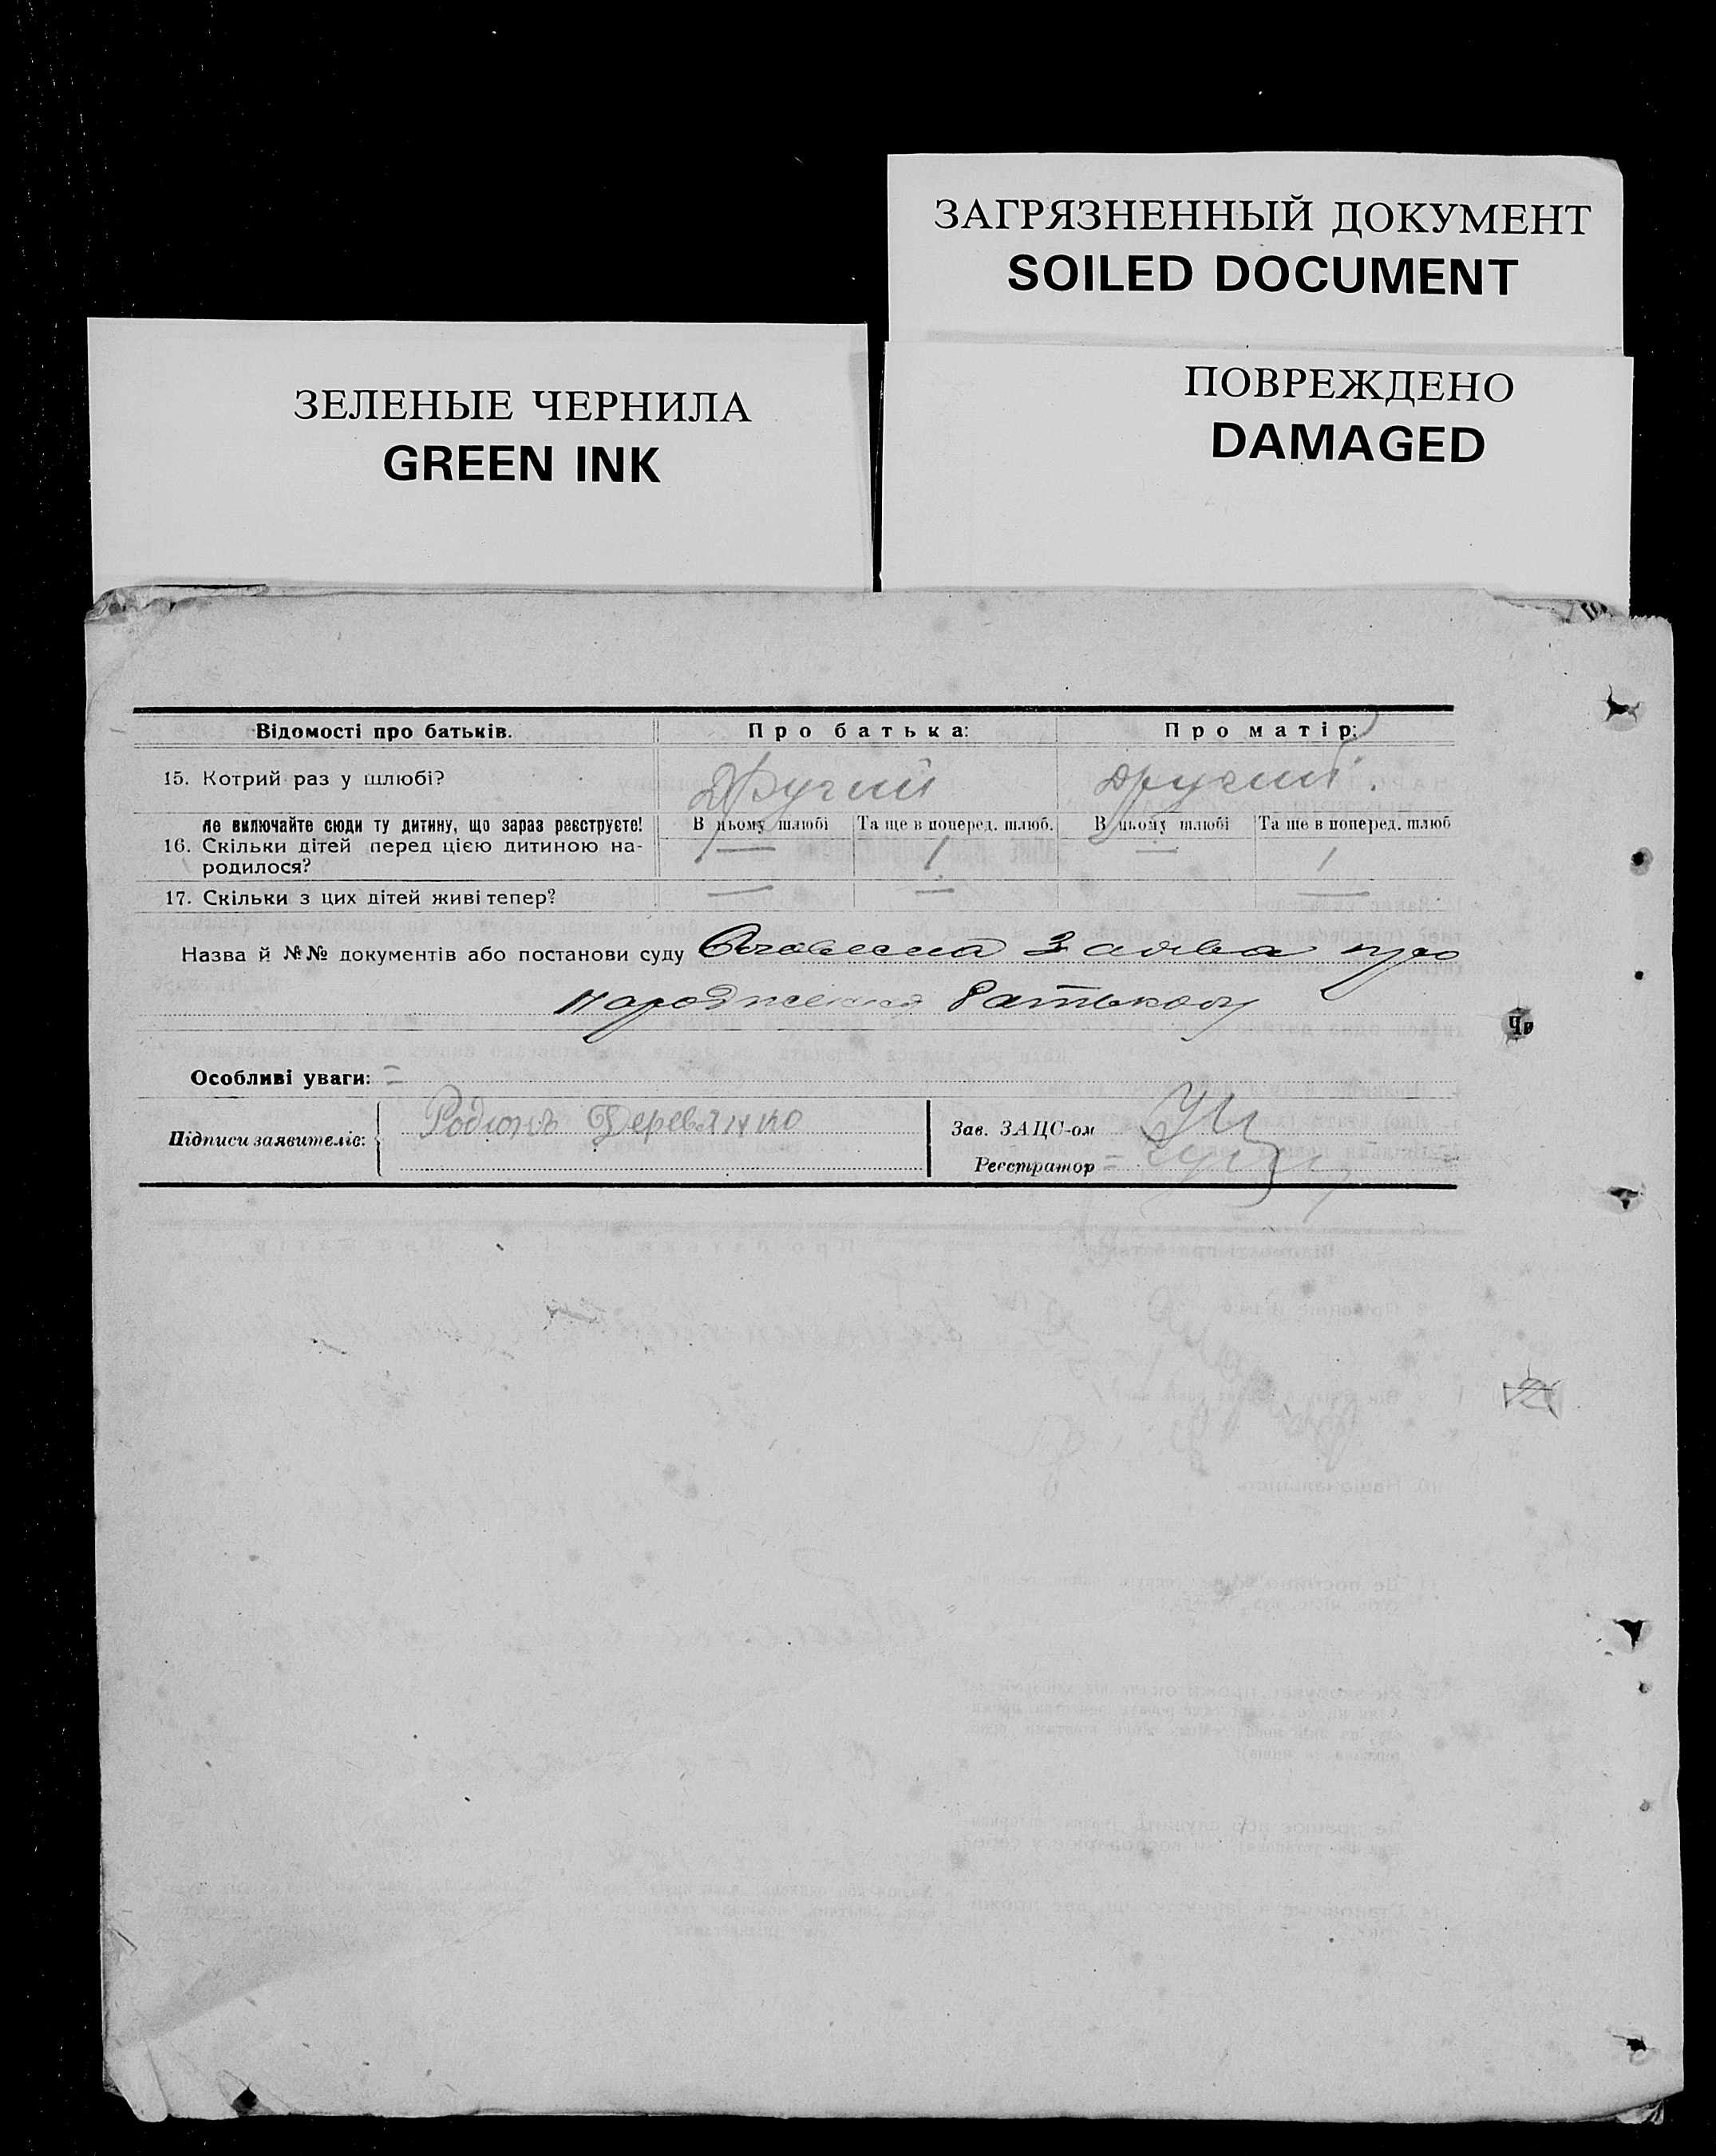 ЗАГРЯЗНЕННЫЙ ДОКУМЕНТ
SOILED DOCUMENT
ЗЕЛЕНЫЕ ЧЕРНИЛА
GREEN INK
ПОВРЕЖДЕНО
DAMAGED
Відомості про батьків. Про батька: Про матір:
15. Котрий раз у шлюбі? Другий другий.
Не включайте сюди ту дитину, що зараз реєструєте! В цьому шлюбі Та ще в поперед. шлюб. В цьому шлюбі Та ще в поперед. шлюб
16. Скільки дітей перед цією дитиною на-
родилося? — 1 — 1
17. Скільки з цих дітей живі тепер? — — —
Назва й №№ документів або постанови суду Словесна заява про
народження батьком
Особливі уваги: =
Підписи заявителів: Родионъ Деревянко
Зав. ЗАЦС-ом
Реєстратор =